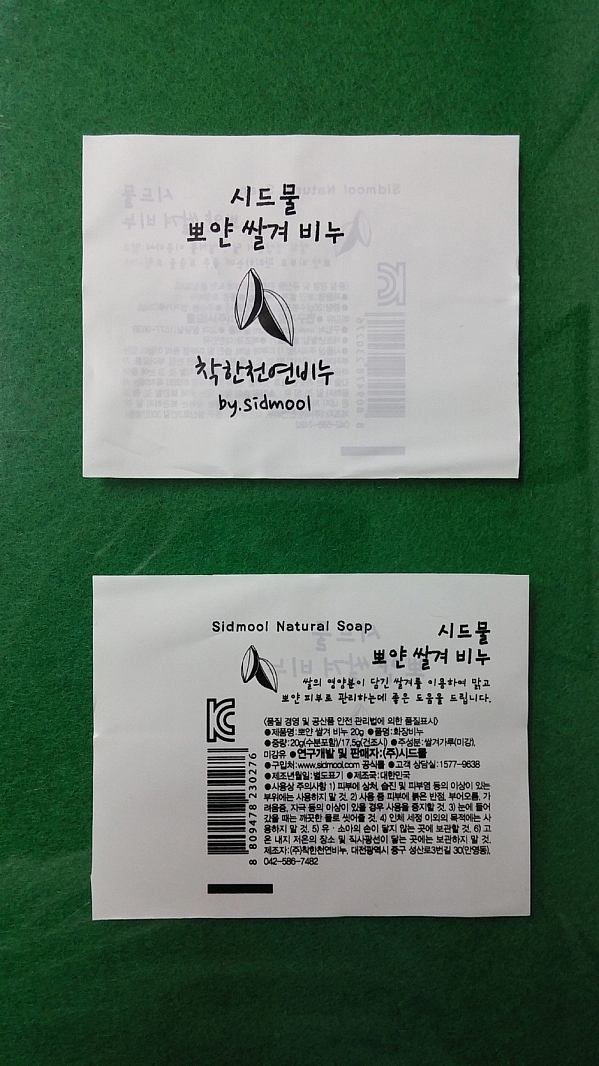 시드물
뽀얀 쌀겨 비누
착한천연비누
by.sidmool
Sidmool Natural Soap
시드물
뽀얀 쌀겨 비누
쌀의 영양분이 담긴 쌀겨를 이용하여 맑고
뽀얀 피부로 관리하는데 좋은 도움을 드립니다.
(품질 경영 및 공산품 안전 관리법에 의한 품질표시)
●제품명: 뽀얀 쌀겨 비누 20g ●품명: 화장비누
●중량: 20g(수분포함)/17.5g(건조시) ●주성분: 쌀겨가루(미강),
미강유 ●연구개발 및 판매자: (주)시드물
●구입처: www.sidmool.com 공식몰 ●고객 상담실: 1577-9638
●제조년월일: 별도표기 ●제조국: 대한민국
●사용상 주의사항 1) 피부에 상처, 습진 및 피부염 등의 이상이 있는
부위에는 사용하지 말 것. 2) 사용 중 피부에 붉은 반점, 부어오름, 가
려움증, 자극 등의 이상이 있을 경우 사용을 중지할 것. 3) 눈에 들어
갔을 때는 깨끗한 물로 씻어줄 것. 4) 인체 세정 이외의 목적에는 사
용하지 말 것. 5) 유·소아의 손이 닿지 않는 곳에 보관할 것. 6) 고
온 내지 저온의 장소 및 직사광선이 닿는 곳에는 보관하지 말 것.
제조자: (주)착한천연비누, 대전광역시 중구 성산로3번길 30(안영동),
042-586-7482
8 809478 230276